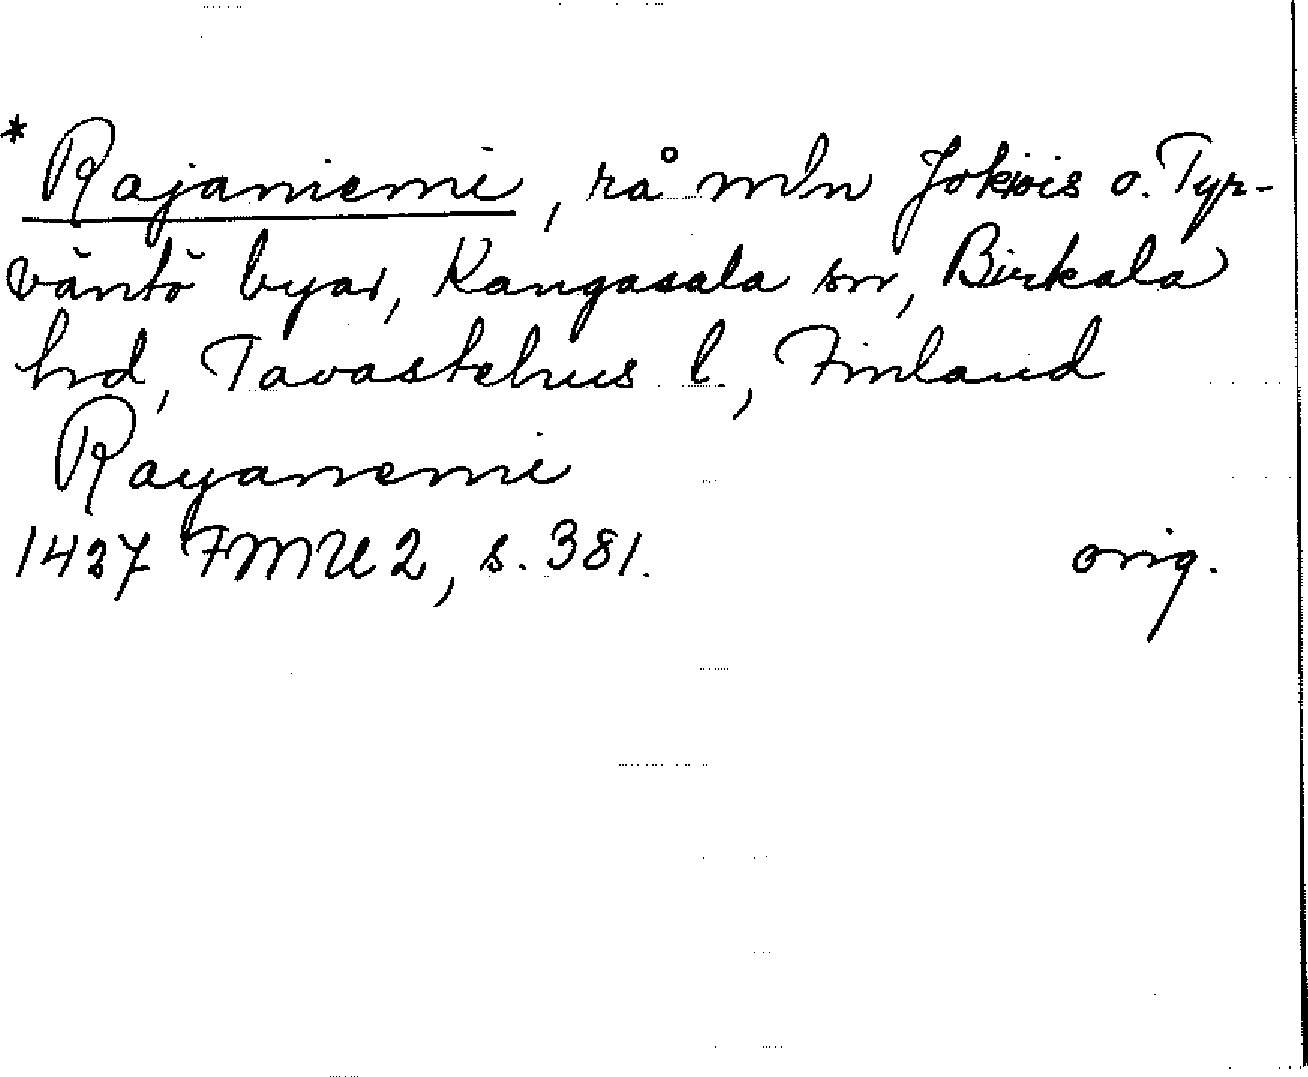 * Rajaniemi, rå mln Jokiois o. Tyr-
väntö byar, Kangasala sn, Birkala
hd, Tavastehus l., Finland
Rayanemi
1427 FMU 2, s. 381. orig.